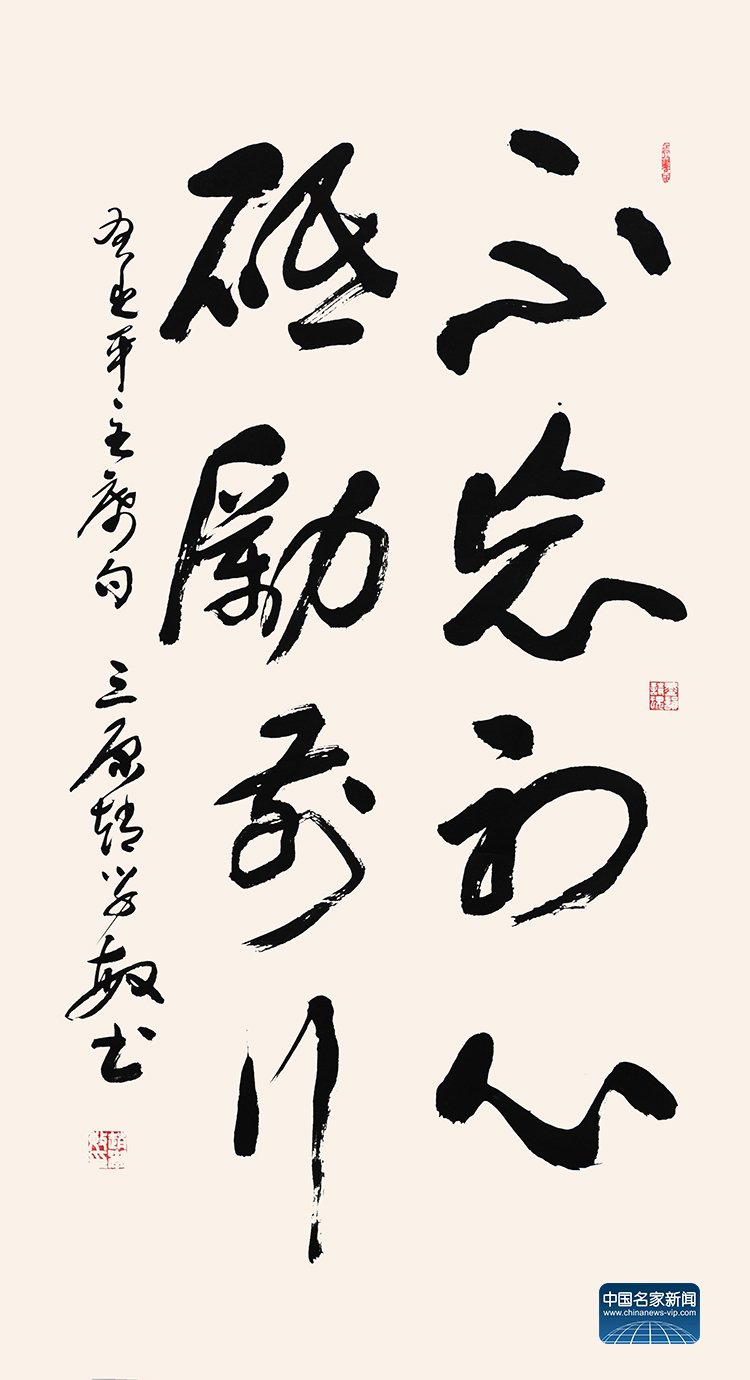 不忘初心
砥勵前行
習近平主席句 三原趙學敏书
中国名家新闻
www.chinanews-vip.com